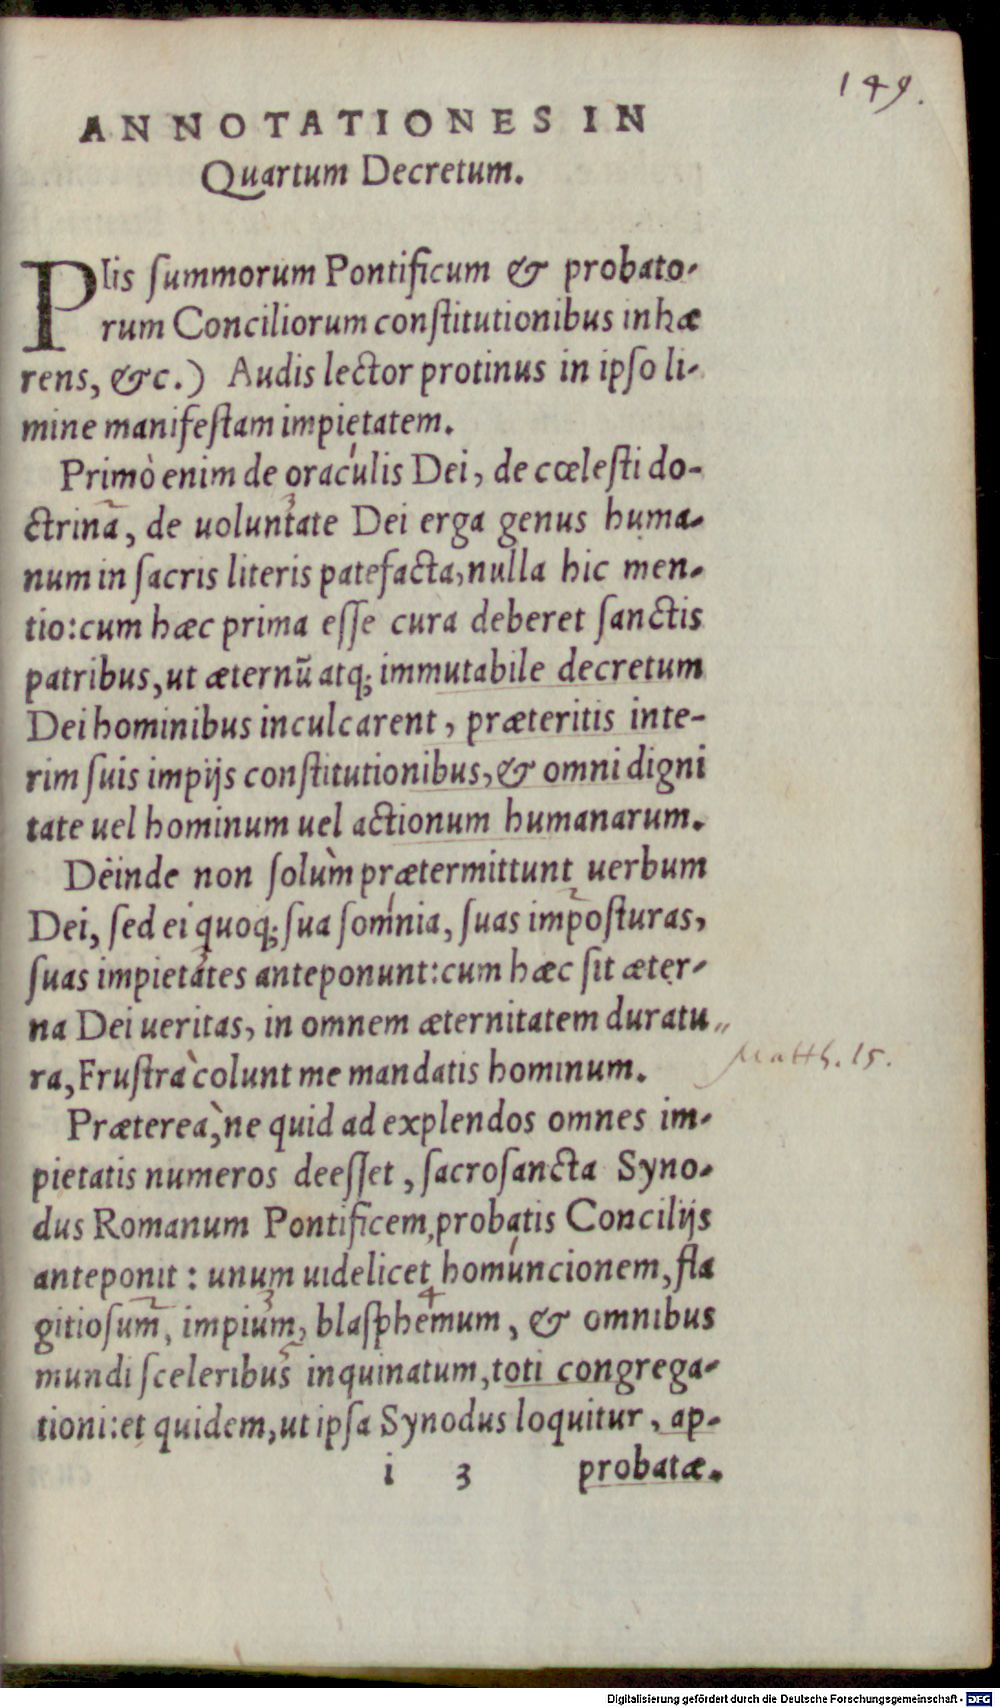 149.
ANNOTATIONES IN
Quartum Decretum.
PIis ſummorum Pontificum & probato-
rum Conciliorum conſtitutionibus inhæ
rens, &c.) Audis lector protinus in ipſo li-
mine manifeſtam impietatem.
Primò enim de oraculis Dei, de cœleſti do-
ctrina, de uoluntate Dei erga genus huma-
num in ſacris literis patefacta, nulla hic men-
tio: cum hæc prima eſſe cura deberet ſanctis
patribus, ut æternũ atq; immutabile decretum
Dei hominibus inculcarent, præteritis inte-
rim ſuis impijs conſtitutionibus, & omni digni
tate uel hominum uel actionum humanarum.
Deinde non ſolùm prætermittunt uerbum
Dei, ſed ei quoq; ſua ſomnia, ſuas impoſturas,
ſuas impietates anteponunt: cum hæc ſit æter-
na Dei ueritas, in omnem æternitatem duratu„
ra, Fruſtrà colunt me mandatis hominum.
Matth. 15.
Prætereà, ne quid ad explendos omnes im-
pietatis numeros deeſſet, ſacroſancta Syno-
dus Romanum Pontificem, probatis Concilijs
anteponit: unum uidelicet homuncionem, fla
gitioſum, impium, blaſphemum, & omnibus
mundi ſceleribus inquinatum, toti congrega-
tioni: et quidem, ut ipſa Synodus loquitur, ap-
i 3 probatæ.
Digitalisierung gefördert durch die Deutsche Forschungsgemeinschaft - DFG